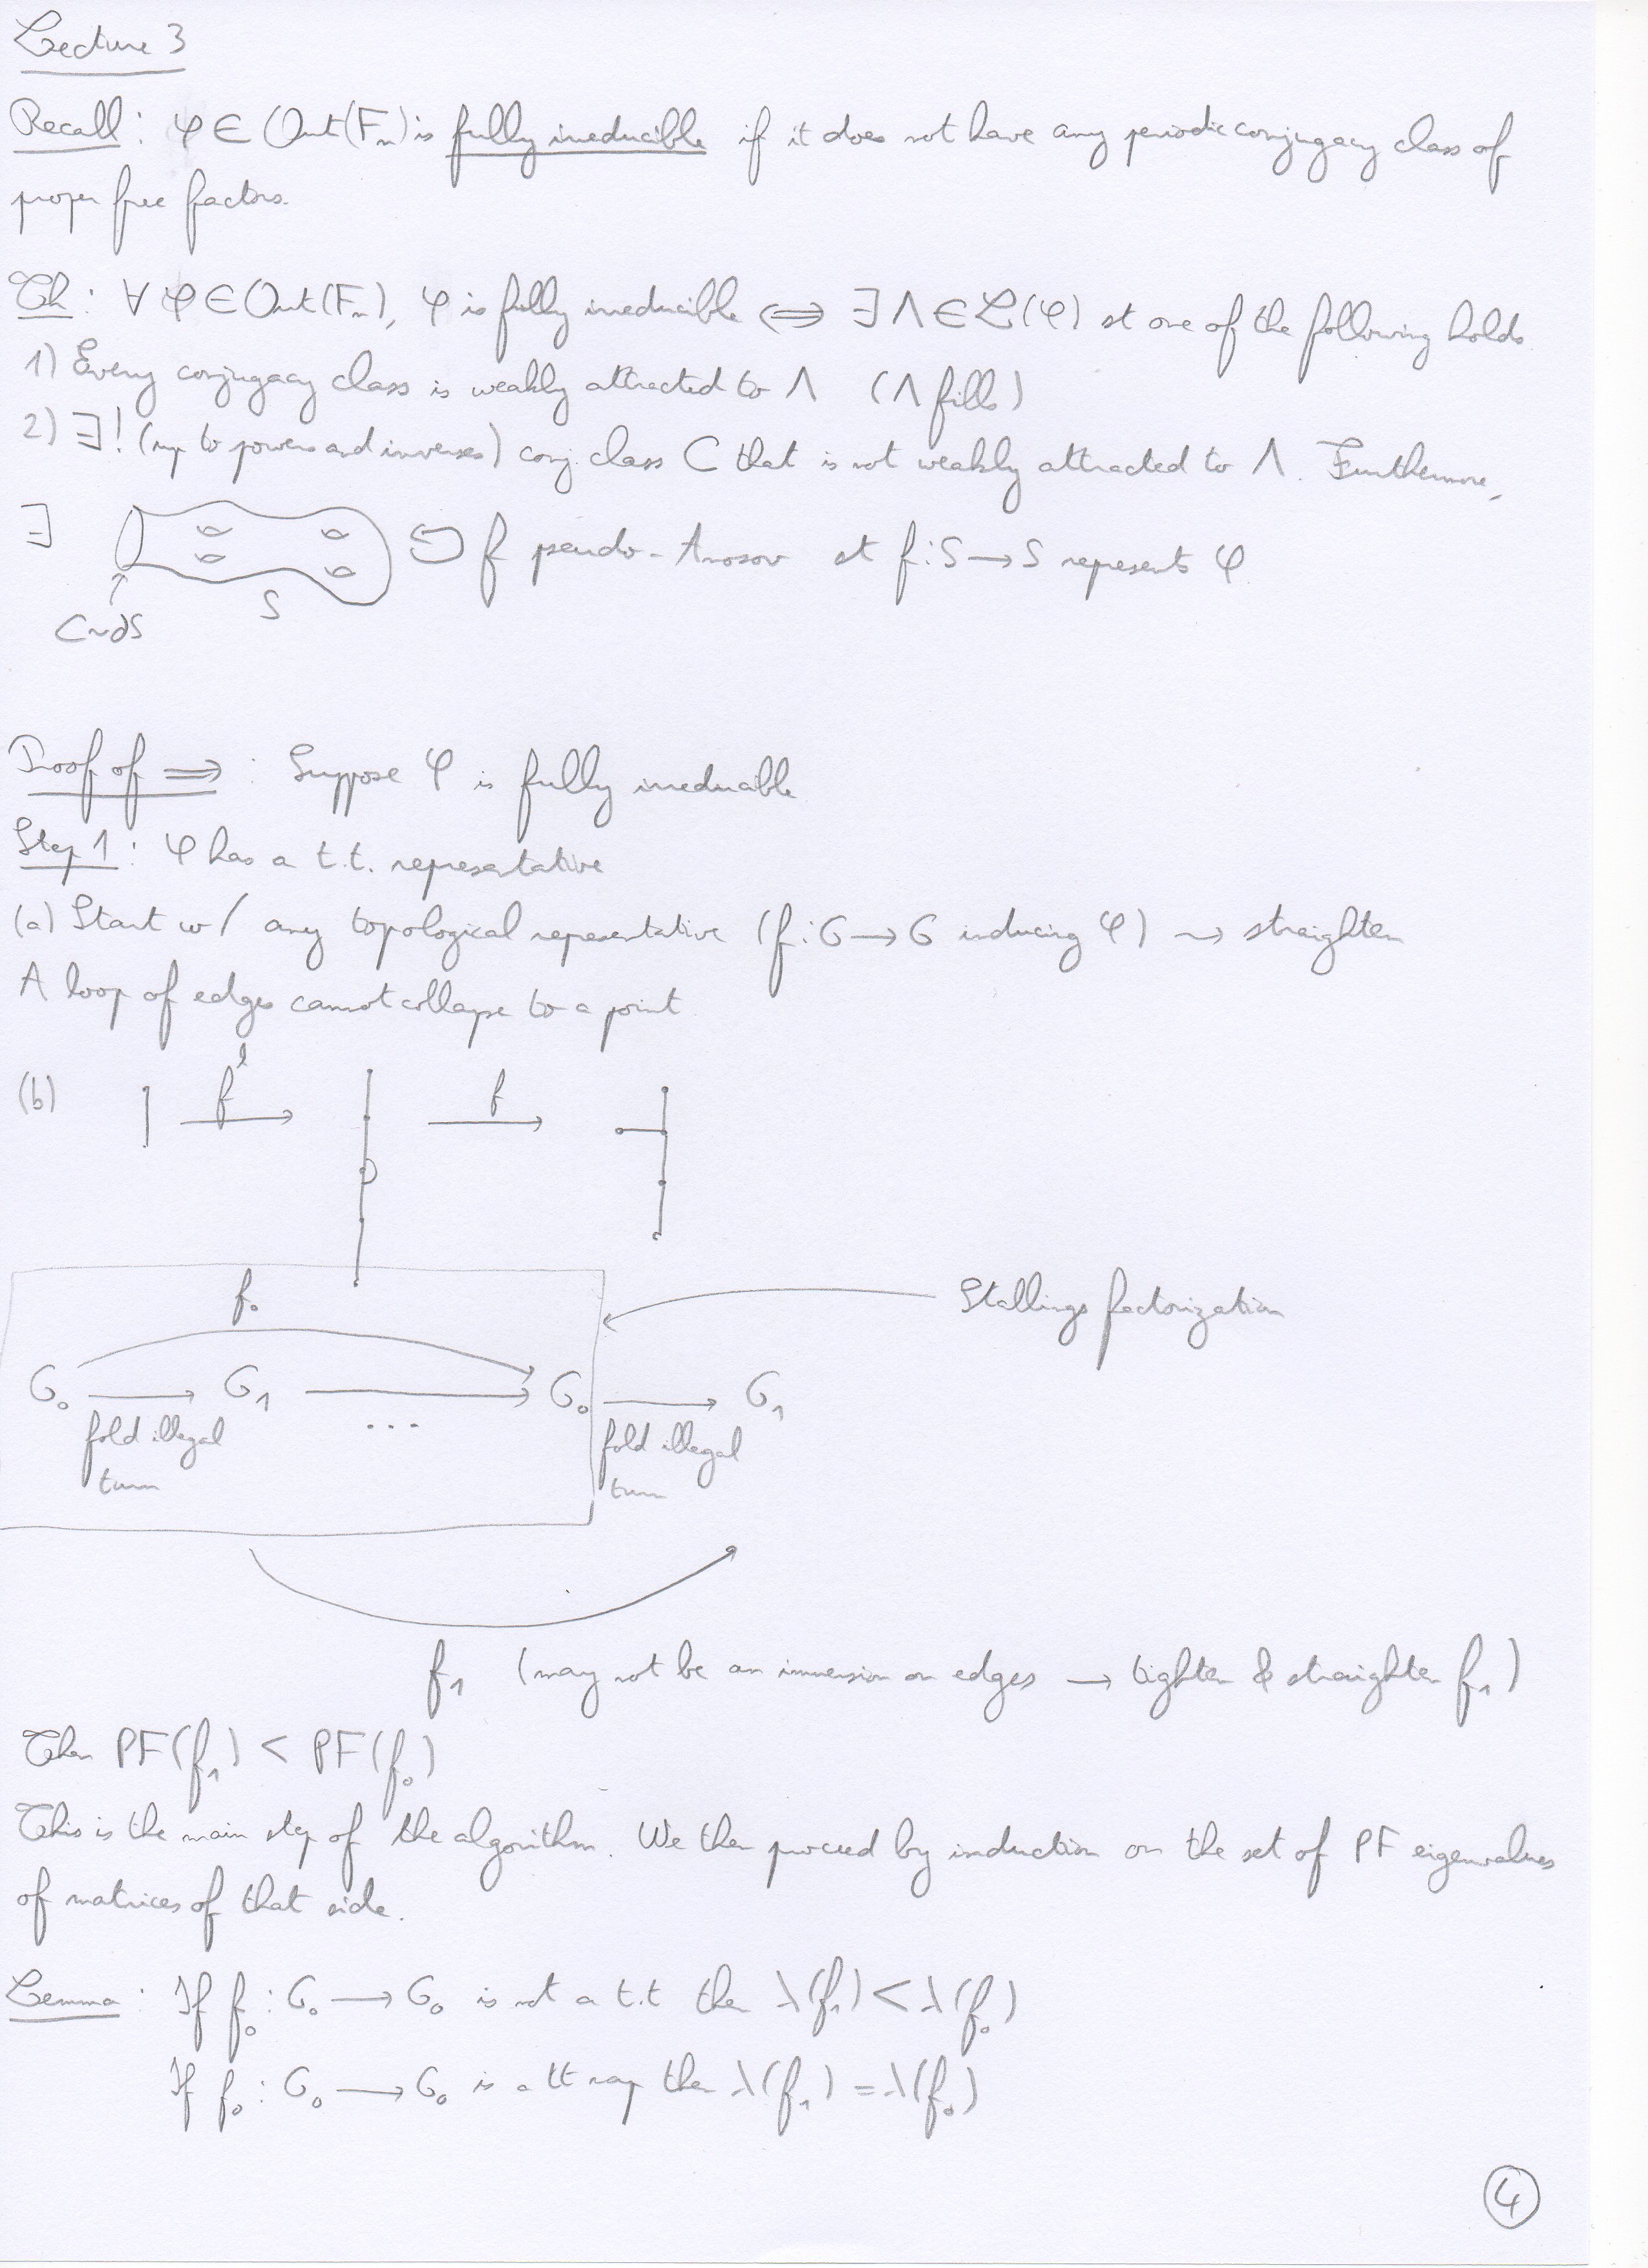 Lecture 3
Recall : φ ∈ Out(Fₙ) is fully irreducible if it does not have any periodic conjugacy class of
proper free factors.
Th : ∀ φ ∈ Out(Fₙ), φ is fully irreducible ⟺ ∃ Λ ∈ ℒ(φ) st one of the following holds
1) Every conjugacy class is weakly attracted to Λ (Λ fills)
2) ∃! (up to powers and inverses) conj. class C that is not weakly attracted to Λ. Furthermore,
∃ ↻ f pseudo-Anosov st f : S → S represents φ
S
C ~ ∂S
Proof of ⟹ : Suppose φ is fully irreducible
Step 1 : φ has a t.t. representative
(a) Start w/ any topological representative (f : G → G inducing φ) ⇝ straighten
A loop of edges cannot collapse to a point
(b) f^l f
f₀ Stallings factorization
G₀ → G₁ → G₀ → G₁
fold illegal ... fold illegal
turn turn
f₁ (may not be an immersion on edges → tighten & straighten f₁)
Then PF(f₁) < PF(f₀)
This is the main step of the algorithm. We then proceed by induction on the set of PF eigenvalues
of matrices of that side.
Lemma : If f₀ : G₀ → G₀ is not a t.t then λ(f₁) < λ(f₀)
If f₀ : G₀ → G₀ is a tt map then λ(f₁) = λ(f₀)
4